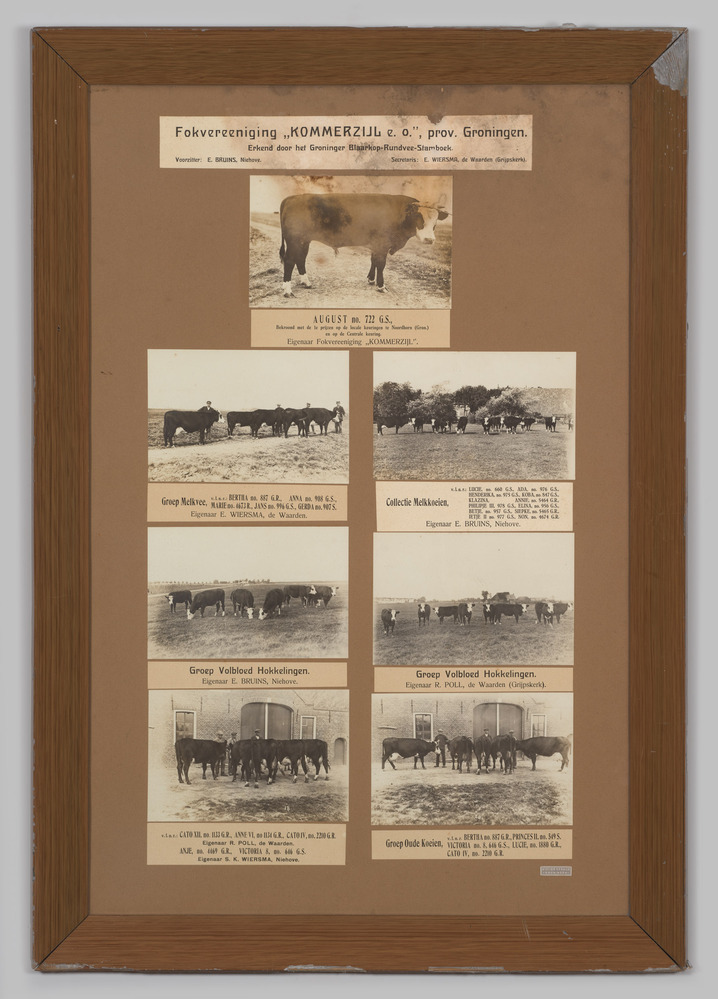 Fokvereeniging „KOMMERZIJL e. o.”, prov. Groningen.
Erkend door het Groninger Blaarkop-Rundvee-Stamboek.
Voorzitter: E. BRUINS, Niehove. Secretaris: E. WIERSMA, de Waarden (Grijpskerk).
AUGUST no. 722 G.S.,
Bekroond met de 1e prijzen op de locale keuringen te Noordhorn (Gron.)
en op de Centrale keuring.
Eigenaar Fokvereeniging „KOMMERZIJL”.
Groep Melkvee, v.l.n.r.: BERTHA no. 887 G.R., ANNA no. 908 G.S.,
MARIE no. 4673 R., JANS no. 996 G.S., GERDA no. 907 S.
Eigenaar E. WIERSMA, de Waarden.
Collectie Melkkoeien, v.l.n.r.: LUCIE, no. 660 G.S., ADA, no. 976 G.S.,
HENDERIKA, no. 975 G.S., KOBA, no 847 G.S.,
KLAZINA, ANNIE, no. 5464 G.R.,
PHILIPJE III, 978 G.S., ELINA, no. 956 G.S.,
BETJE, no. 957 G.S., SIEPKE, no. 5465 G.R.,
IETJE II no. 977 G.S., NON, no. 4674 G.R.
Eigenaar E. BRUINS, Niehove.
Groep Volbloed Hokkelingen.
Eigenaar E. BRUINS, Niehove.
Groep Volbloed Hokkelingen.
Eigenaar R. POLL, de Waarden (Grijpskerk).
v.l.n.r.: CATO XII, no. 1133 G.R., ANNE VI, no 1134 G.R., CATO IV, no. 2210 G.R.
Eigenaar R. POLL, de Waarden.
ANJE, no. 4469 G.R., VICTORIA 8, no. 646 G.S.
Eigenaar S. K. WIERSMA, Niehove.
Groep Oude Koeien, v.l.n.r.: BERTHA no. 887 G.R., PRINCES II, no. 349 S.
VICTORIA no. 8, 646 G.S., LUCIE, no. 1880 G.R.,
CATO IV, no. 2210 G.R.